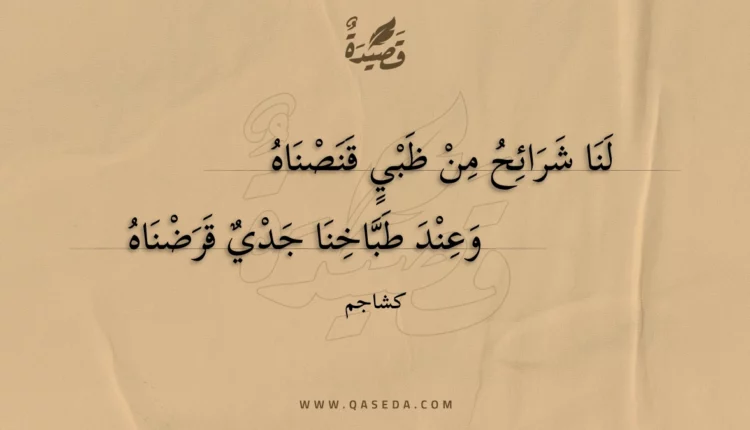 قَصِيْدَةٌ
لَنَا شَرَائِحُ مِنْ ظَبْيٍ قَنَصْنَاهُ
وَعِنْدَ طَبَّاخِنَا جَدْيٌ قَرَضْنَاهُ
كشاجم
WWW.QASEDA.COM